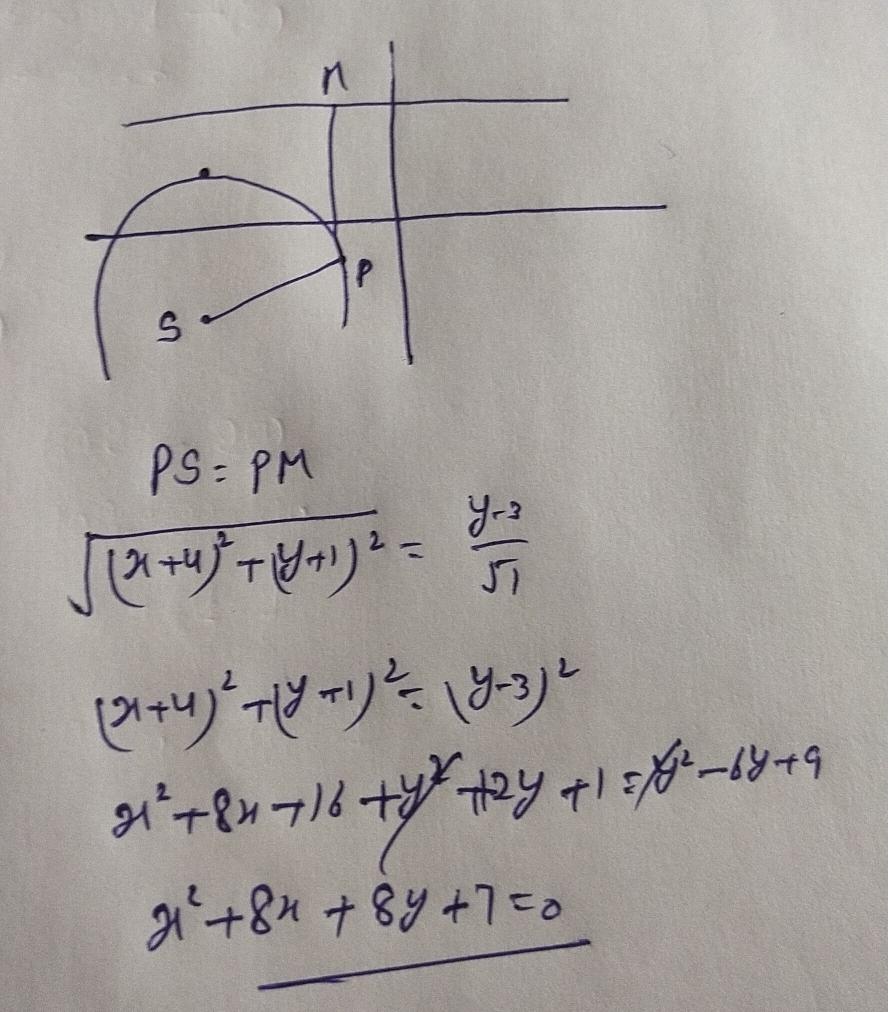 M
P
S
PS = PM
√((x+4)² + (y+1)²) = (y-3)/√1
(x+4)² + (y+1)² = (y-3)²
x² + 8x + 16 + y² + 2y + 1 = y² - 6y + 9
x² + 8x + 8y + 7 = 0